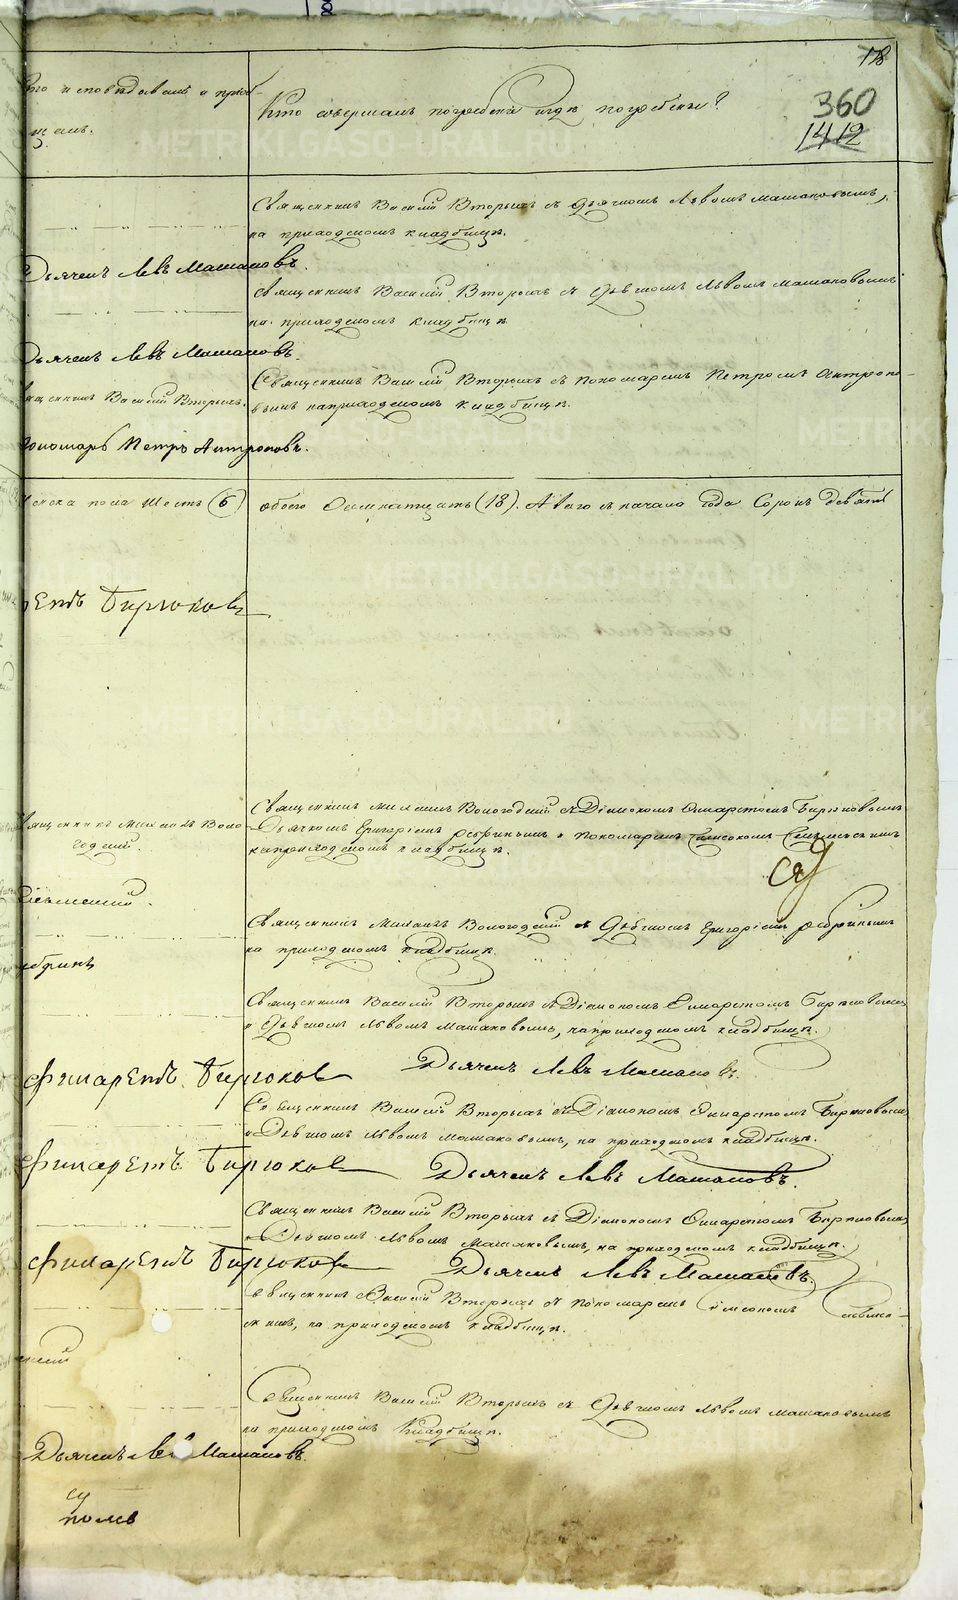 18
Кто исповѣдывалъ и пріоб-
щалъ.
Кто совершалъ погребеніе и гдѣ погребены?
360
1412
Священникъ Василій Вторыхъ съ Дьячкомъ Львомъ Машановымъ,
на приходскомъ кладбищѣ.
Дьячекъ Левъ Машановъ.
Священникъ Василій Вторыхъ съ Дьячкомъ Львомъ Машановымъ
на приходскомъ кладбищѣ
Дьячекъ Левъ Машановъ.
Священникъ Василій Вторыхъ съ Пономаремъ Петромъ Антропо-
Священникъ Василій Вторыхъ.
вымъ на приходскомъ кладбищѣ.
Пономарь Петръ Антроповъ.
женска пола шесть (6) обоего Осмнатцать (18). А всего съ начала года Сорокъ девять
Бирюковъ
Священникъ Михаилъ Вологодскій съ Діакономъ Филаретомъ Бирюковымъ
Священникъ Михаилъ Воло-
Дьячкомъ Григоріемъ Ребринымъ и Пономаремъ
годскій.
на приходскомъ кладбищѣ.
Священникъ Михаилъ Вологодскій съ Дьячкомъ Григоріемъ Ребринымъ
на приходскомъ кладбищѣ.
Священникъ Василій Вторыхъ съ Діакономъ Филаретомъ Бирюковымъ
и Дьячкомъ Львомъ Машановымъ, на приходскомъ кладбищѣ.
Филаретъ Бирюковъ Дьячекъ Левъ Машановъ.
Священникъ Василій Вторыхъ съ Діакономъ Филаретомъ Бирюковымъ
и Дьячкомъ Львомъ Машановымъ, на приходскомъ кладбищѣ.
Филаретъ Бирюковъ Дьячекъ Левъ Машановъ.
Священникъ Василій Вторыхъ съ Діакономъ Филаретомъ Бирюковымъ
и Дьячкомъ Львомъ Машановымъ, на приходскомъ кладбищѣ.
Филаретъ Бирюковъ Дьячекъ Левъ Машановъ.
Священникъ Василій Вторыхъ съ Пономаремъ
на приходскомъ кладбищѣ.
Священникъ Василій Вторыхъ съ Дьячкомъ Львомъ Машановымъ
на приходскомъ кладбищѣ.
Дьячекъ Левъ Машановъ.
METRIKI.GASO-URAL.RU